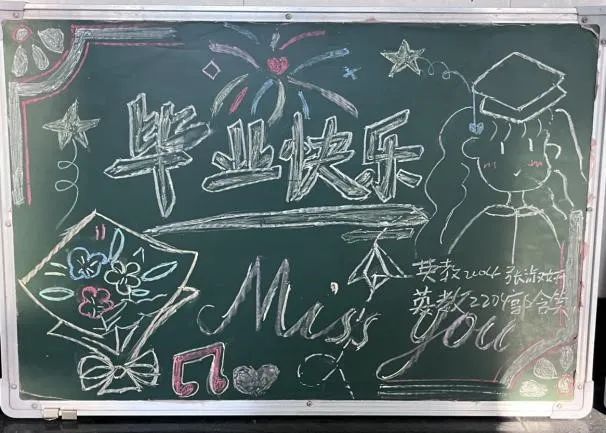 毕业快乐
英教2204 张淑妍
英教2204 郭含笑
Miss you